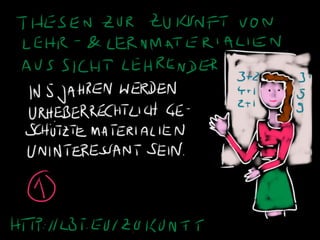 THESEN ZUR ZUKUNFT VON
LEHR- & LERNMATERIALIEN
AUS SICHT LEHRENDER
IN 5 JAHREN WERDEN
URHEBERRECHTLICH GE-
SCHÜTZTE MATERIALIEN
UNINTERESSANT SEIN.
1
3+2 3
4+1 5
2+1 9
HTTP://L3T.EU/ZUKUNFT